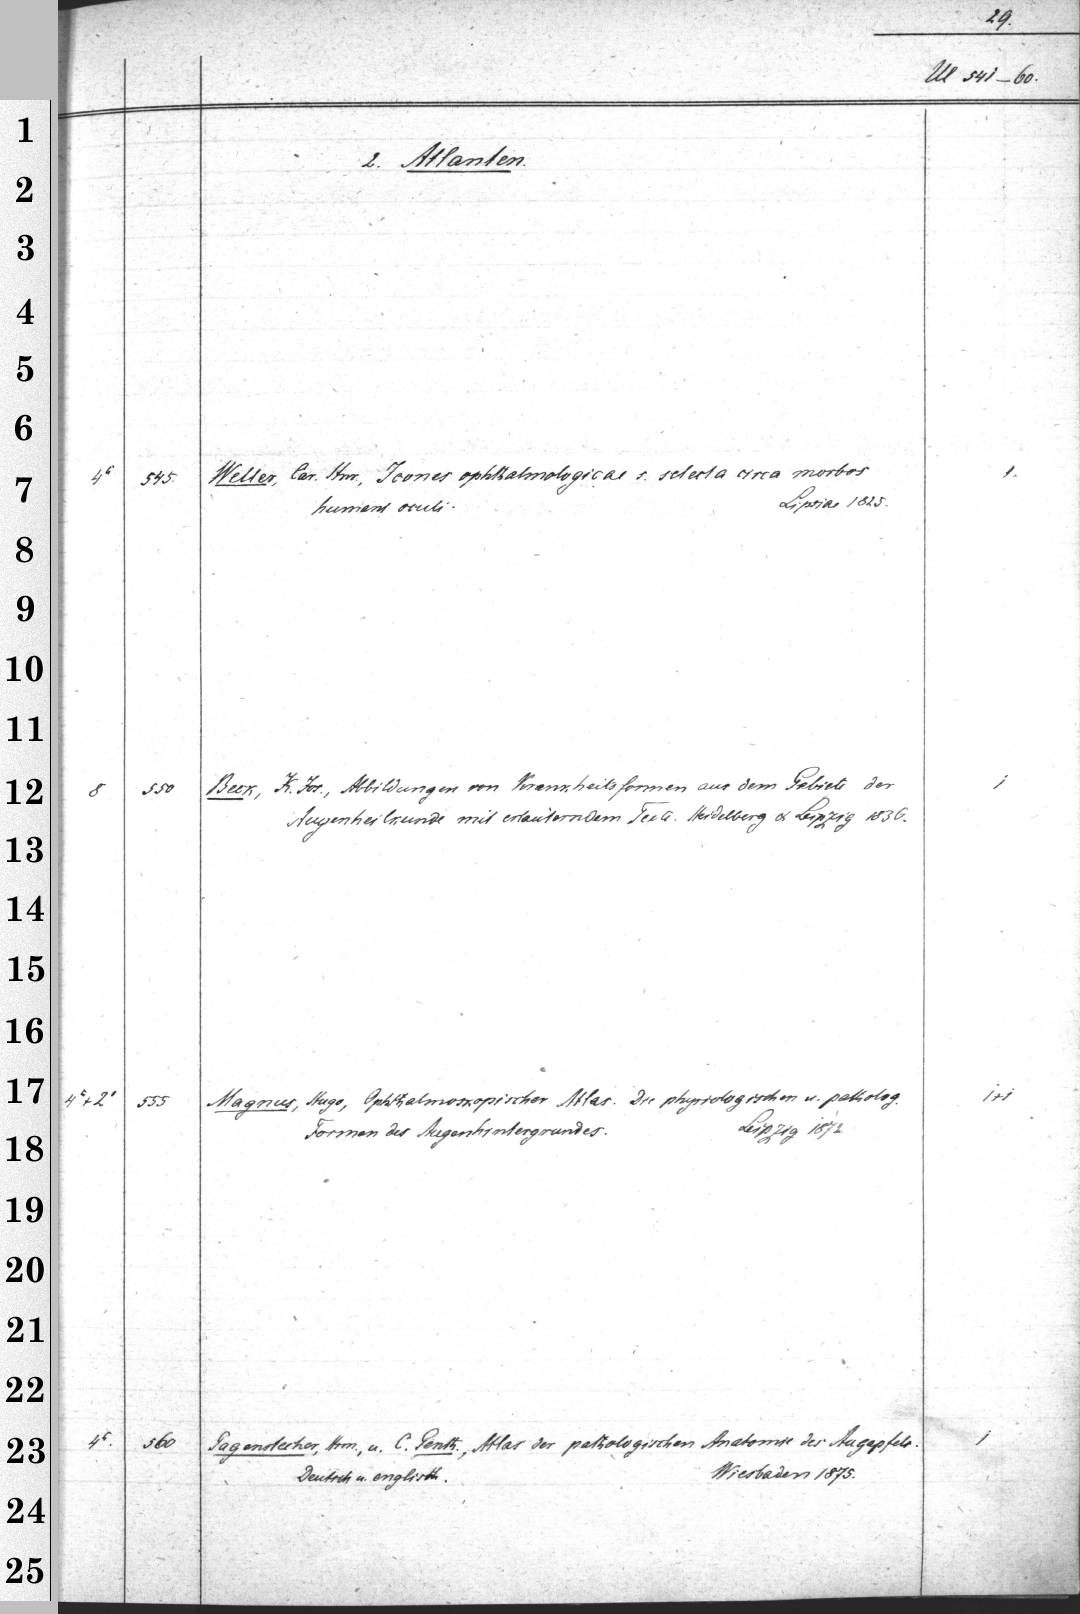 29.
Ul 541-60.
2. Atlanten.
4° 545. Weller, Car. Hnr., Icones ophthalmologicae s. selecta circa morbos 1.
humani oculi. Lipsiae 1825.
8 550 Beck, K. Jos., Abbildungen von Krankheitsformen aus dem Gebiete der 1
Augenheilkunde mit erläuterndem Texte. Heidelberg & Leipzig 1836.
4°+2° 555 Magnus, Hugo, Ophthalmoskopischer Atlas. Die physiologischen u. patholog. 1+1
Formen des Augenhintergrundes. Leipzig 1872
4°. 560 Pagenstecher, Hrm., u. C. Genth., Atlas der pathologischen Anatomie des Augapfels. 1
Deutsch u. englisch. Wiesbaden 1875.
1
2
3
4
5
6
7
8
9
10
11
12
13
14
15
16
17
18
19
20
21
22
23
24
25